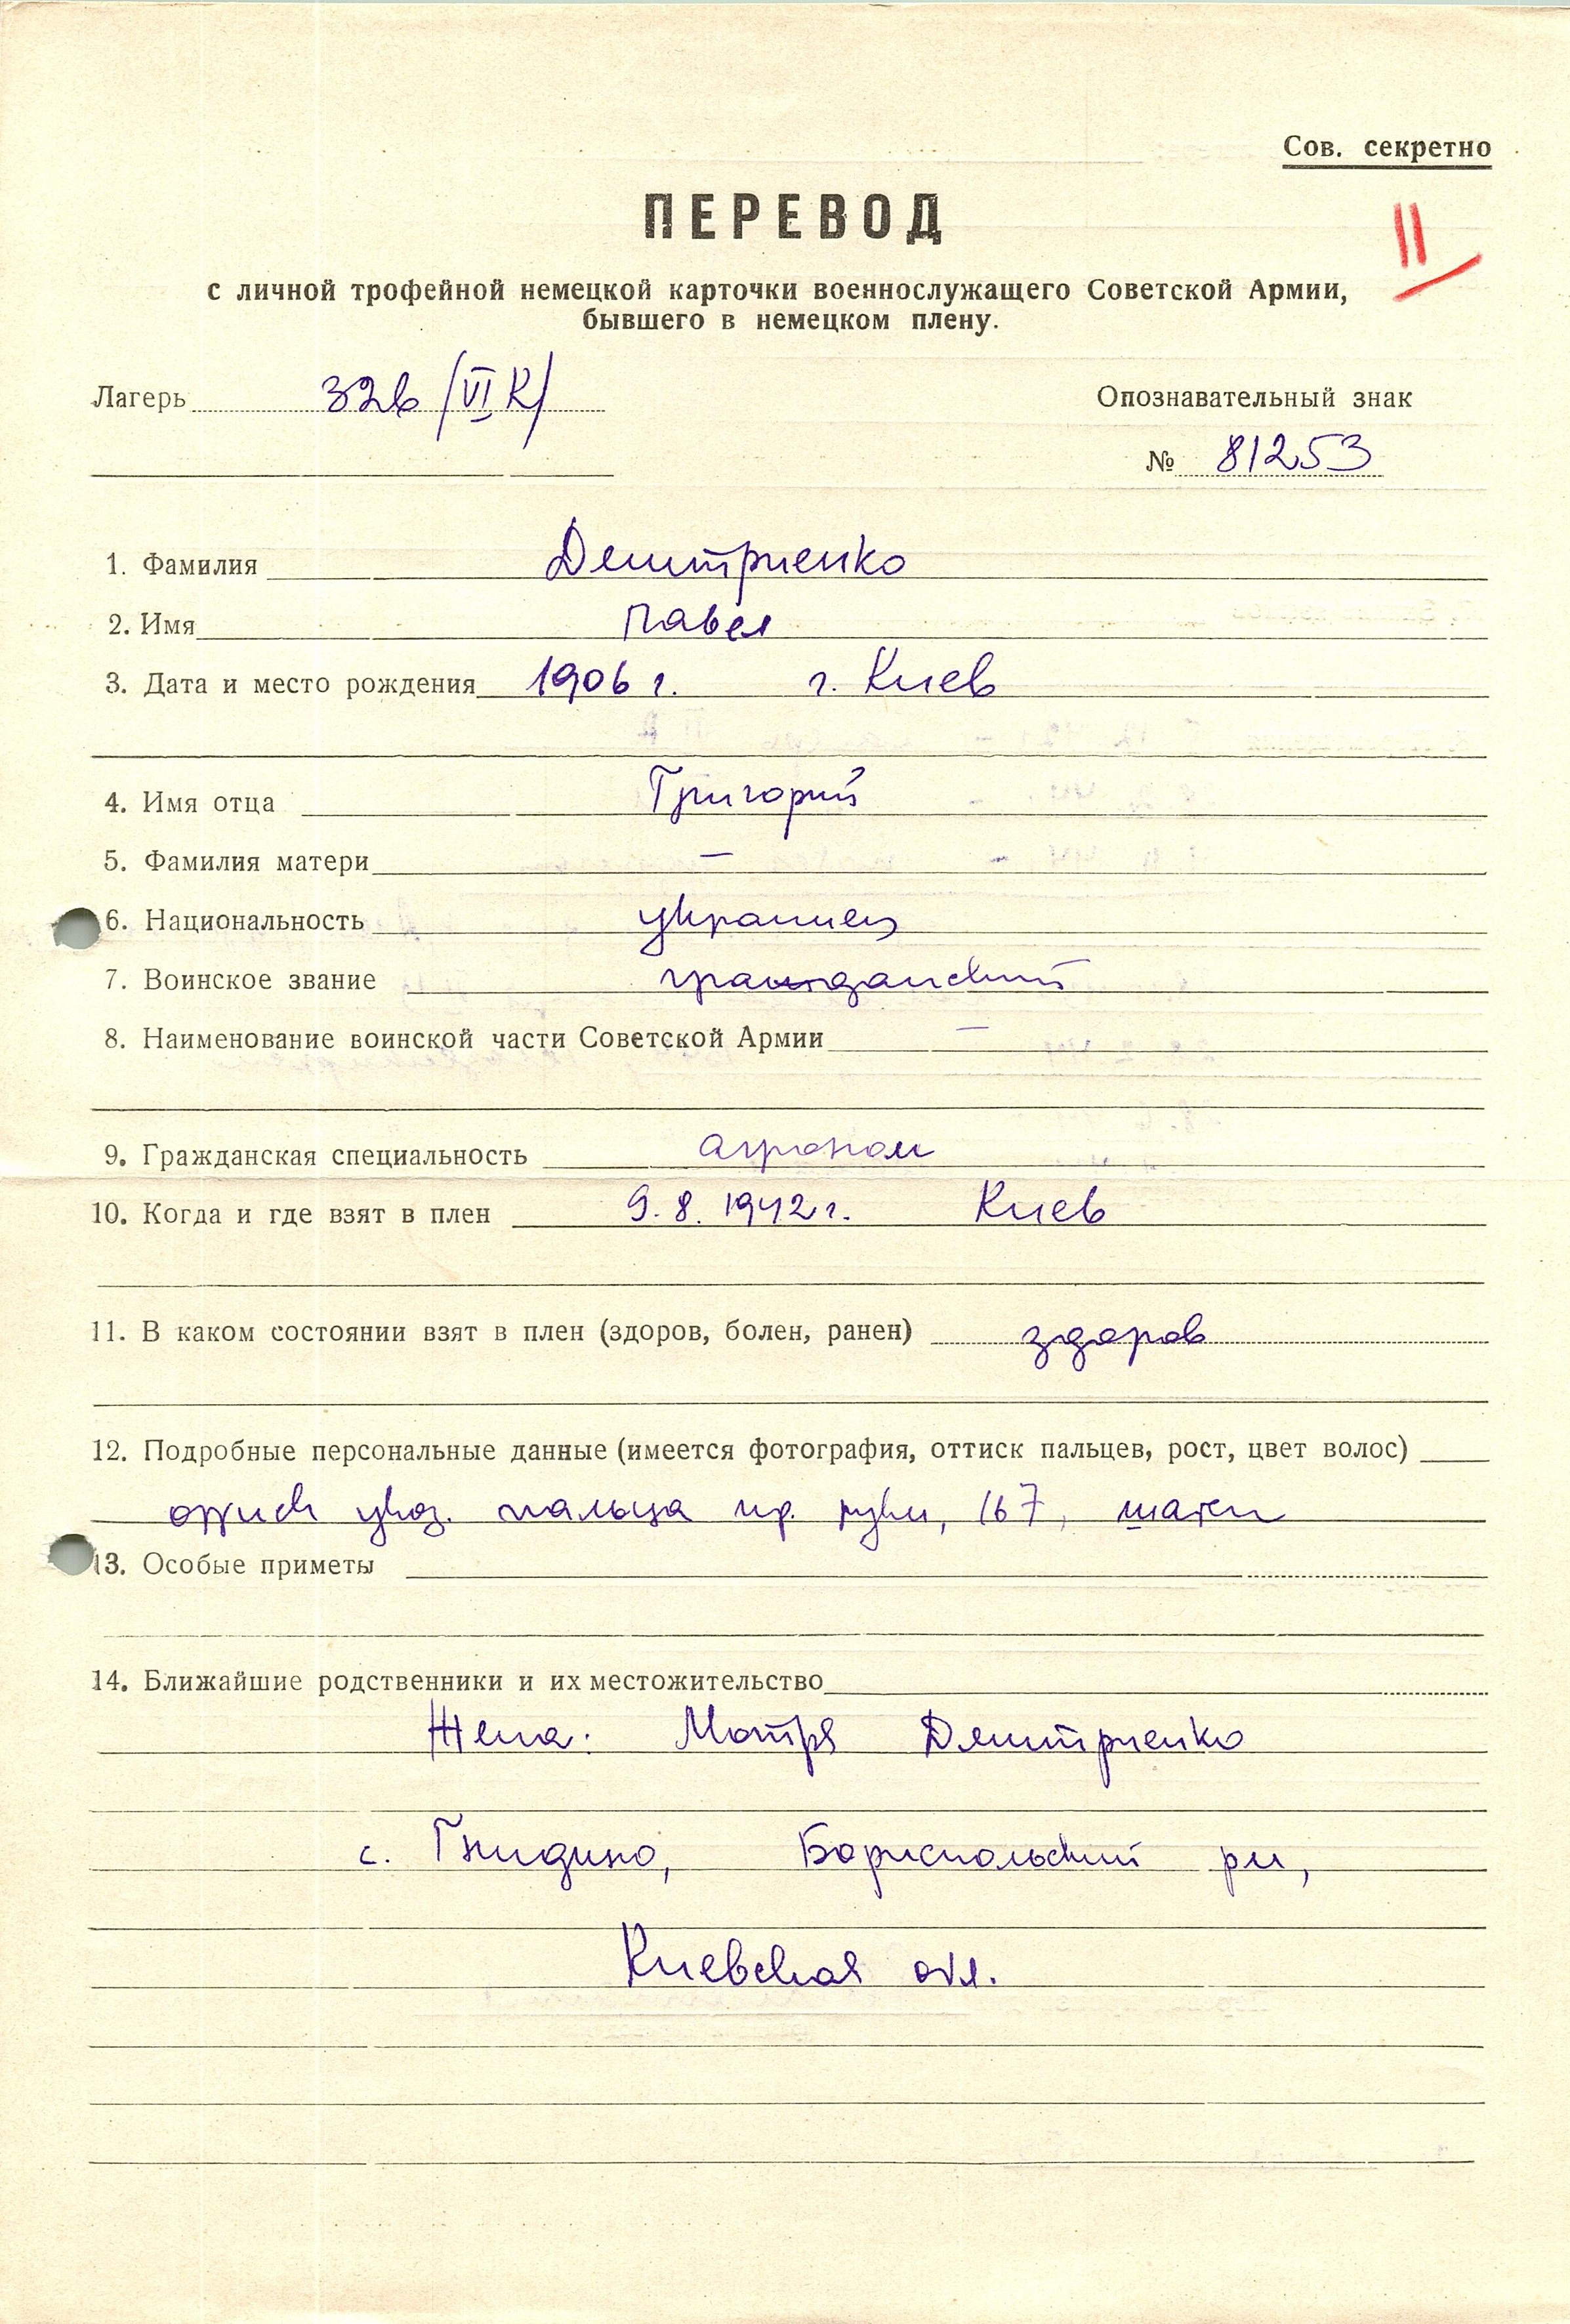 Сов. секретно
ПЕРЕВОД
II
с личной трофейной немецкой карточки военнослужащего Советской Армии,
бывшего в немецком плену.
Лагерь 326 /VI К/
Опознавательный знак
№ 81253
1. Фамилия Демитриенко
2. Имя Павел
3. Дата и место рождения 1906 г. г. Киев
4. Имя отца Григорий
5. Фамилия матери —
6. Национальность украинец
7. Воинское звание гражданский
8. Наименование воинской части Советской Армии —
9. Гражданская специальность агроном
10. Когда и где взят в плен 9.8.1942 г. Киев
11. В каком состоянии взят в плен (здоров, болен, ранен) здоров
12. Подробные персональные данные (имеется фотография, оттиск пальцев, рост, цвет волос)
оттиск указ. пальца пр. руки, 167, шатен
13. Особые приметы
14. Ближайшие родственники и их местожительство
Жена: Мотря Демитриенко
с. Гнидино, Бориспольский рн,
Киевская обл.